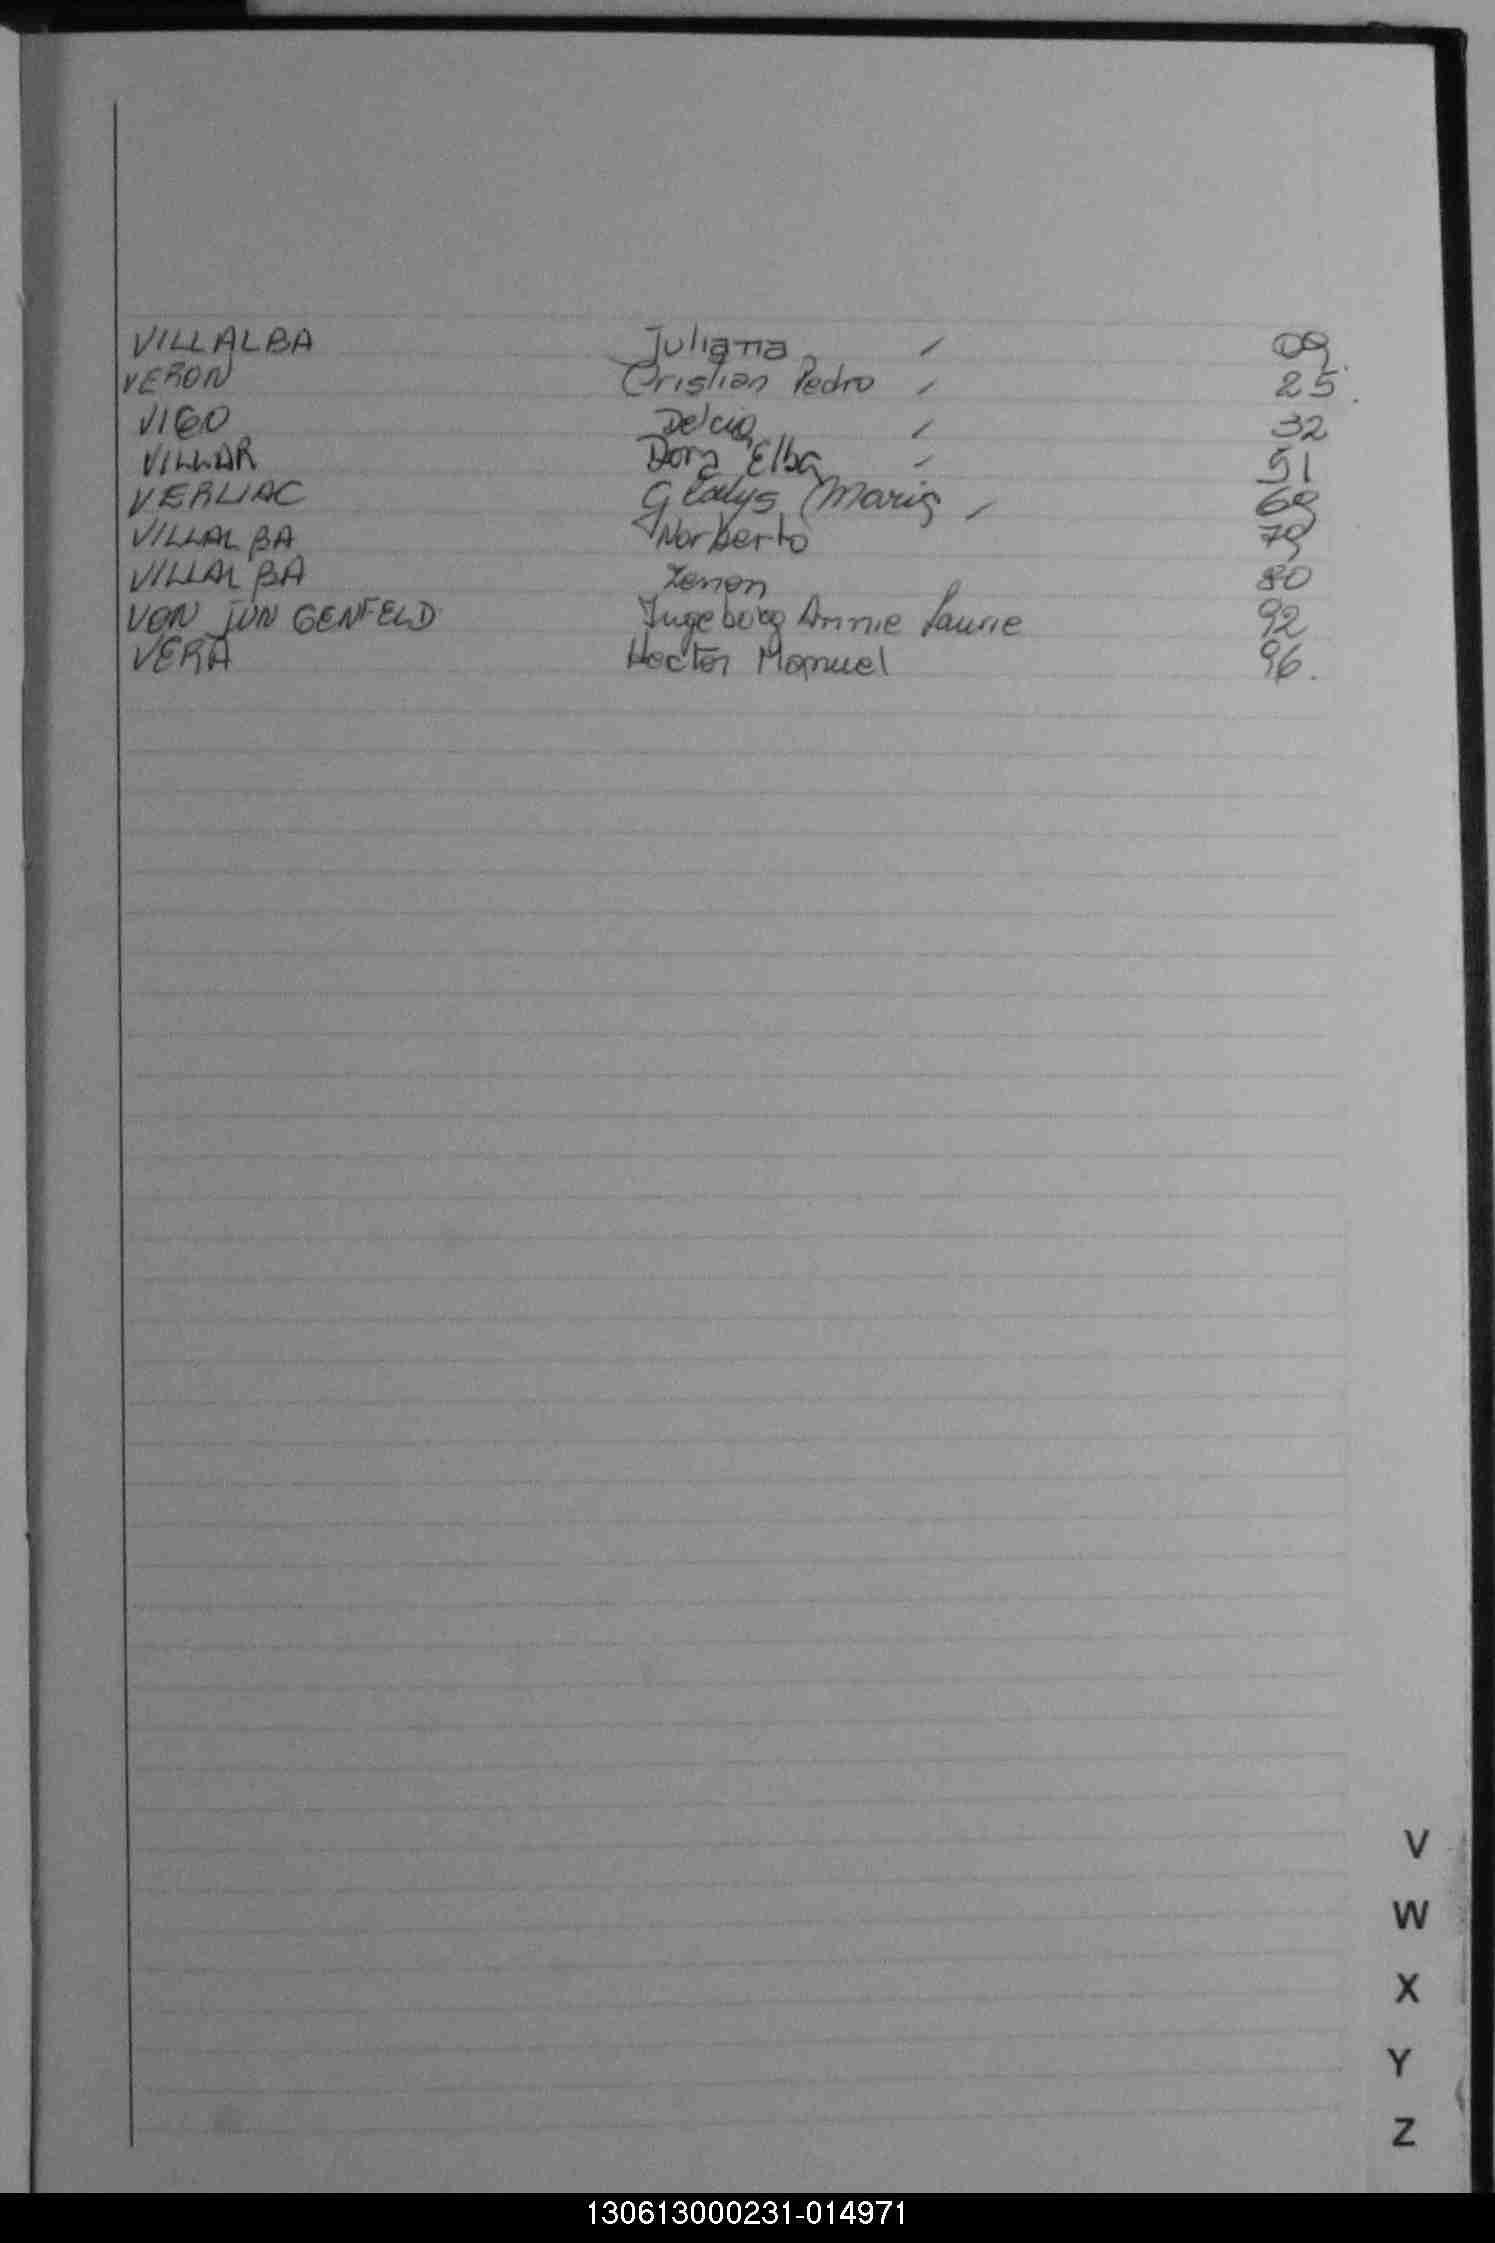 VILLALBA Juliana / 09
VERON Cristian Pedro / 25.
VIGO Delcia / 32
VILLAR Dora Elba / 51
VERLIAC Gladys Maria / 69
VILLALBA Norberto 79
VILLALBA Zenon 80
VON JUN GENFELD Ingeborg Annie Laurie 92
VERA Hector Manuel 96.
V
W
X
Y
Z
130613000231-014971